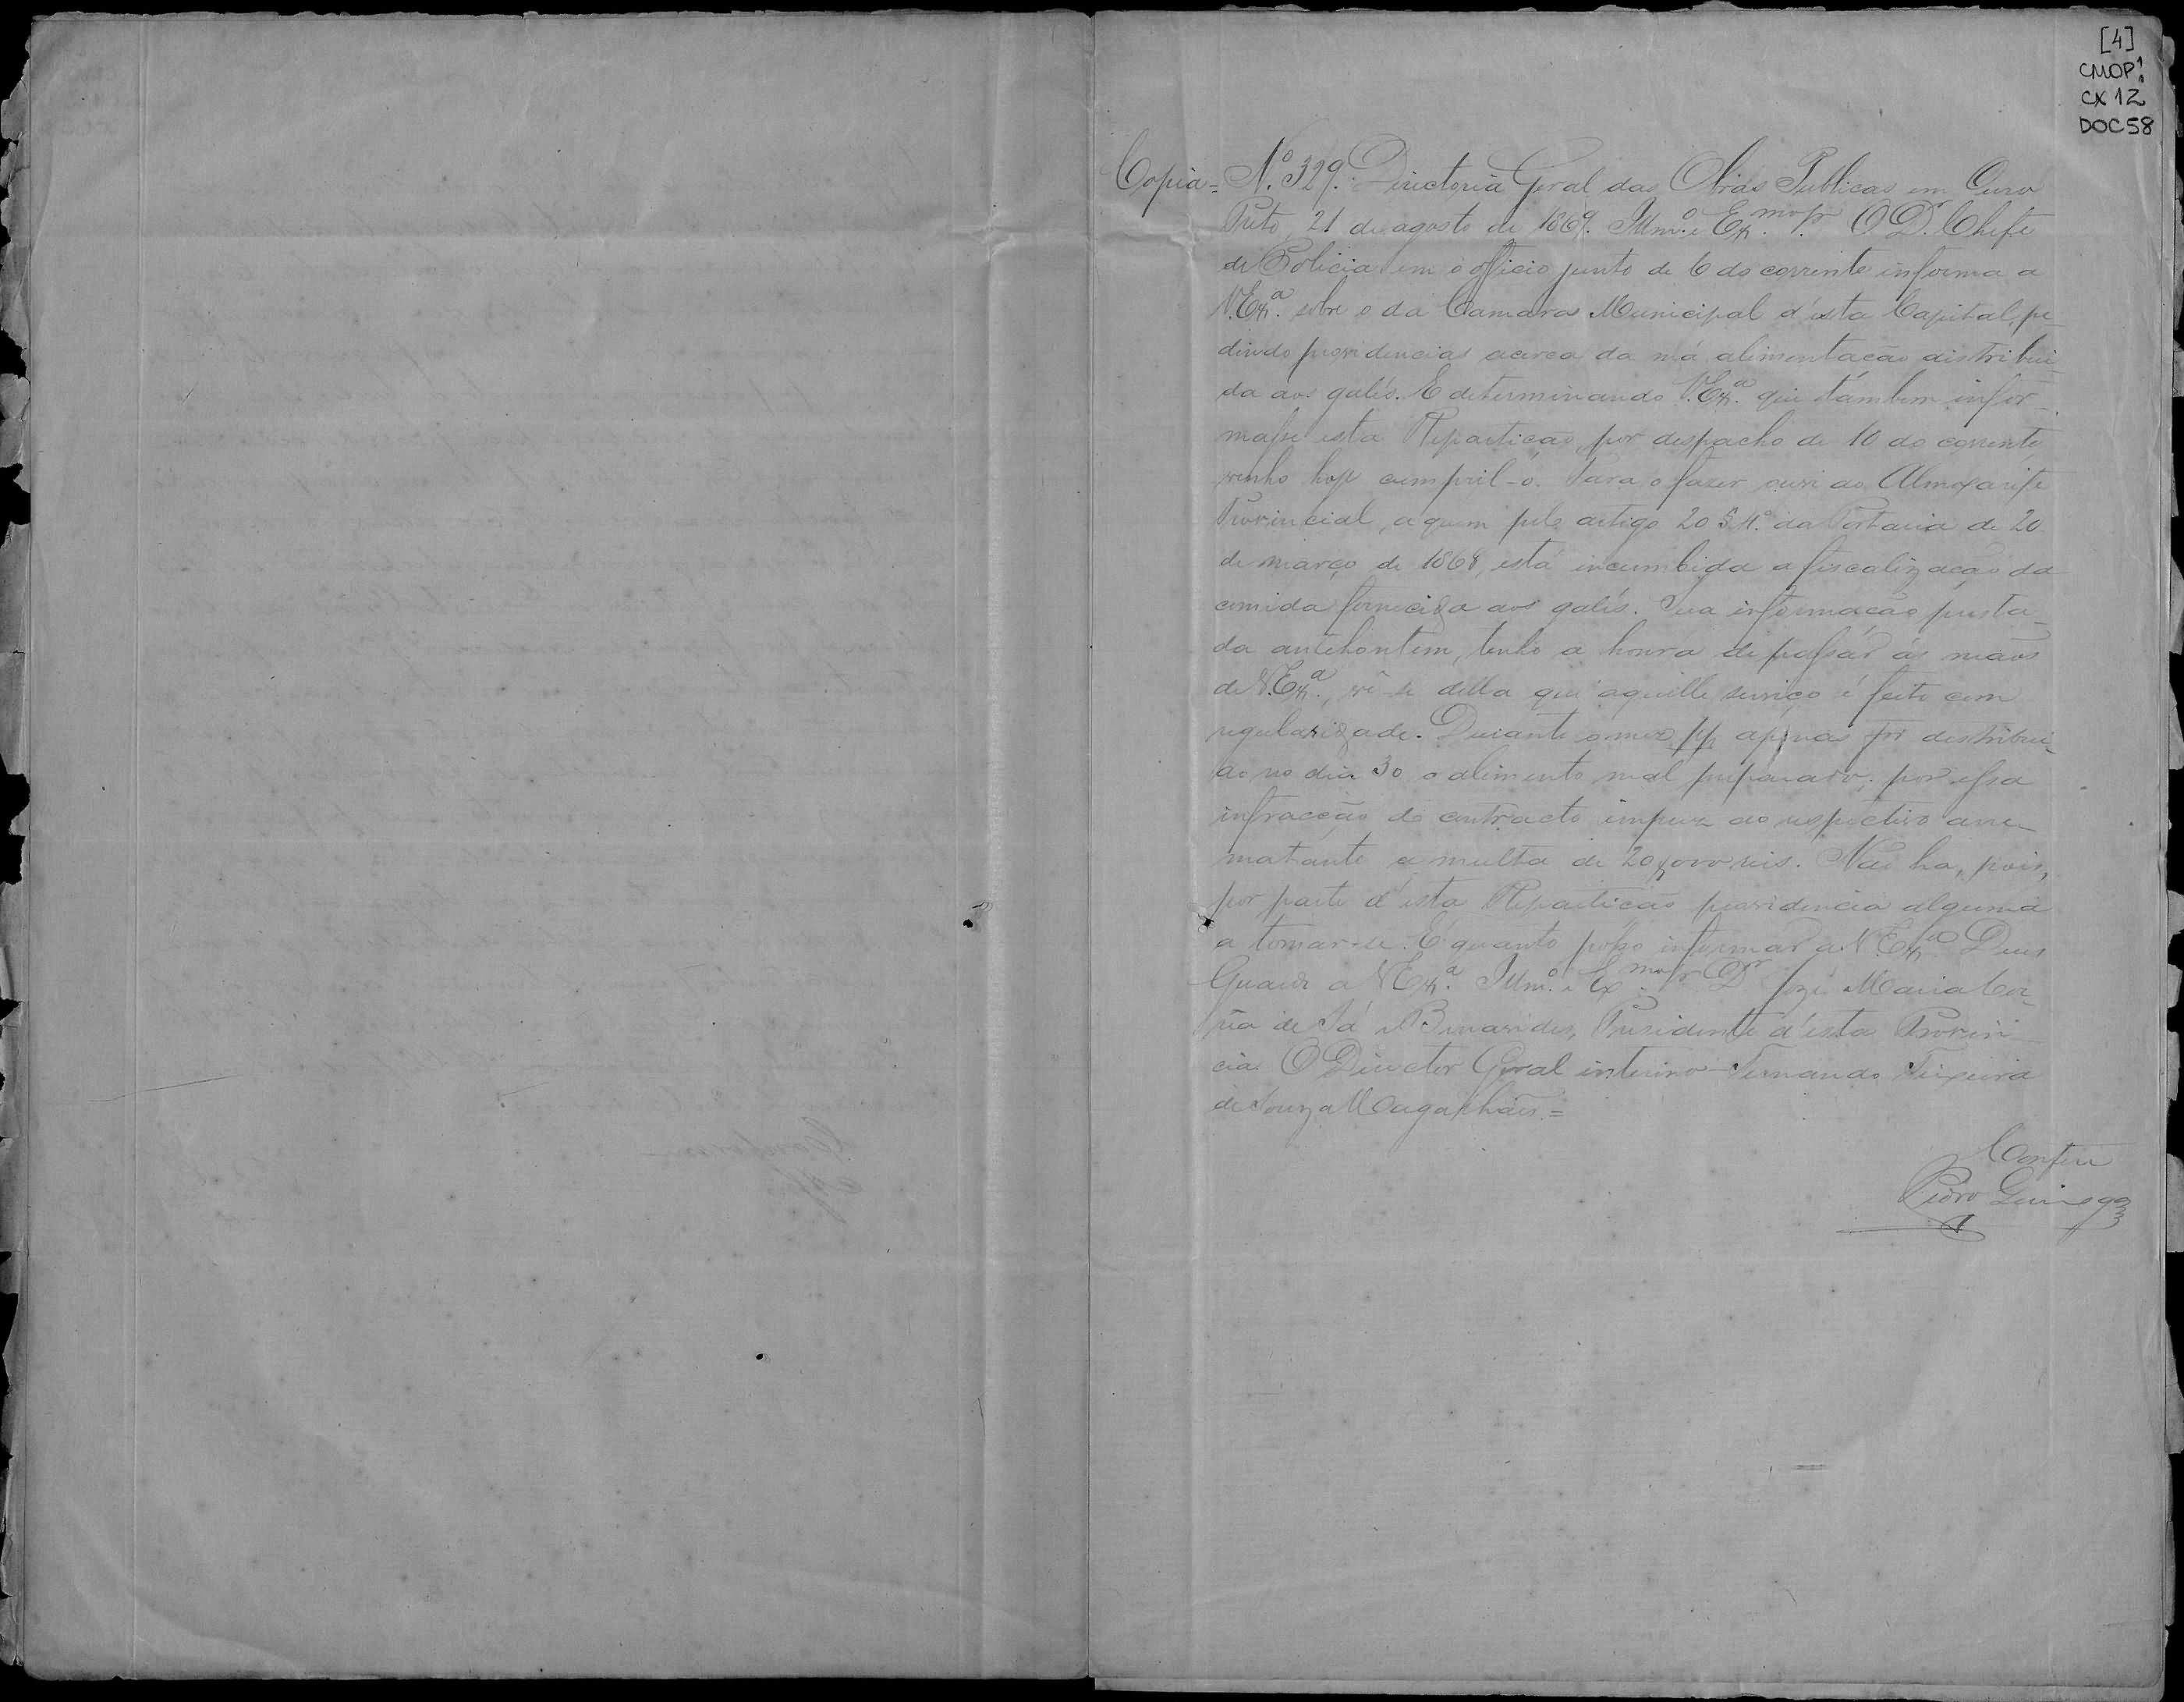 [4]
CMOP:
CX 12
DOC 58
Copia = N.º 329. Directoria Geral das Obras Publicas em Ouro
Preto, 21 de agosto de 1869. Illm.º e Ex.mo Sr. O Dr. Chefe
de Policia em o officio junto de 6 do corrente informa a
V. Ex.ª sobre o da Camara Municipal d'esta Capital, pe-
dindo providencias acerca da má alimentação distribui-
da aos galés. E determinando V. Ex.ª que támbem infor-
masse esta Repartição, por despacho de 10 do corrente
venho hoje cumpril-o. Para o fazer ouvi ao Almoxarife
Provincial, a quem pelo artigo 20 § 4.º da Portaria de 20
de março de 1868, está incumbida a fiscalização da
comida fornecida aos galés. Sua informação presta-
da antehontem, tenho a honra de passár ás mãos
de V. Ex.ª, vê-se della que aquelle serviço é feito com
regularidade. Durante o mez pp apenas foi distribui-
do no dia 30 o alimento mal preparado; por essa
infracção do contracto impuz ao respectivo arre-
matante a multa de 20$000 reis. Não ha, pois,
por parte d'esta Repartição providencia alguma
a tomar-se. É quanto posso informar a V. Ex.ª Deus
Guarde a V. Ex.ª Illm.º e Ex.mo Sr. Dr. José Maria Cor-
rêa de Sá e Benavides, Presidente d'esta Provin-
cia. O Director Geral interino Fernando Teixeira
de Souza Magalhães. =
Conferi
Pedro Queiroga
Conforme